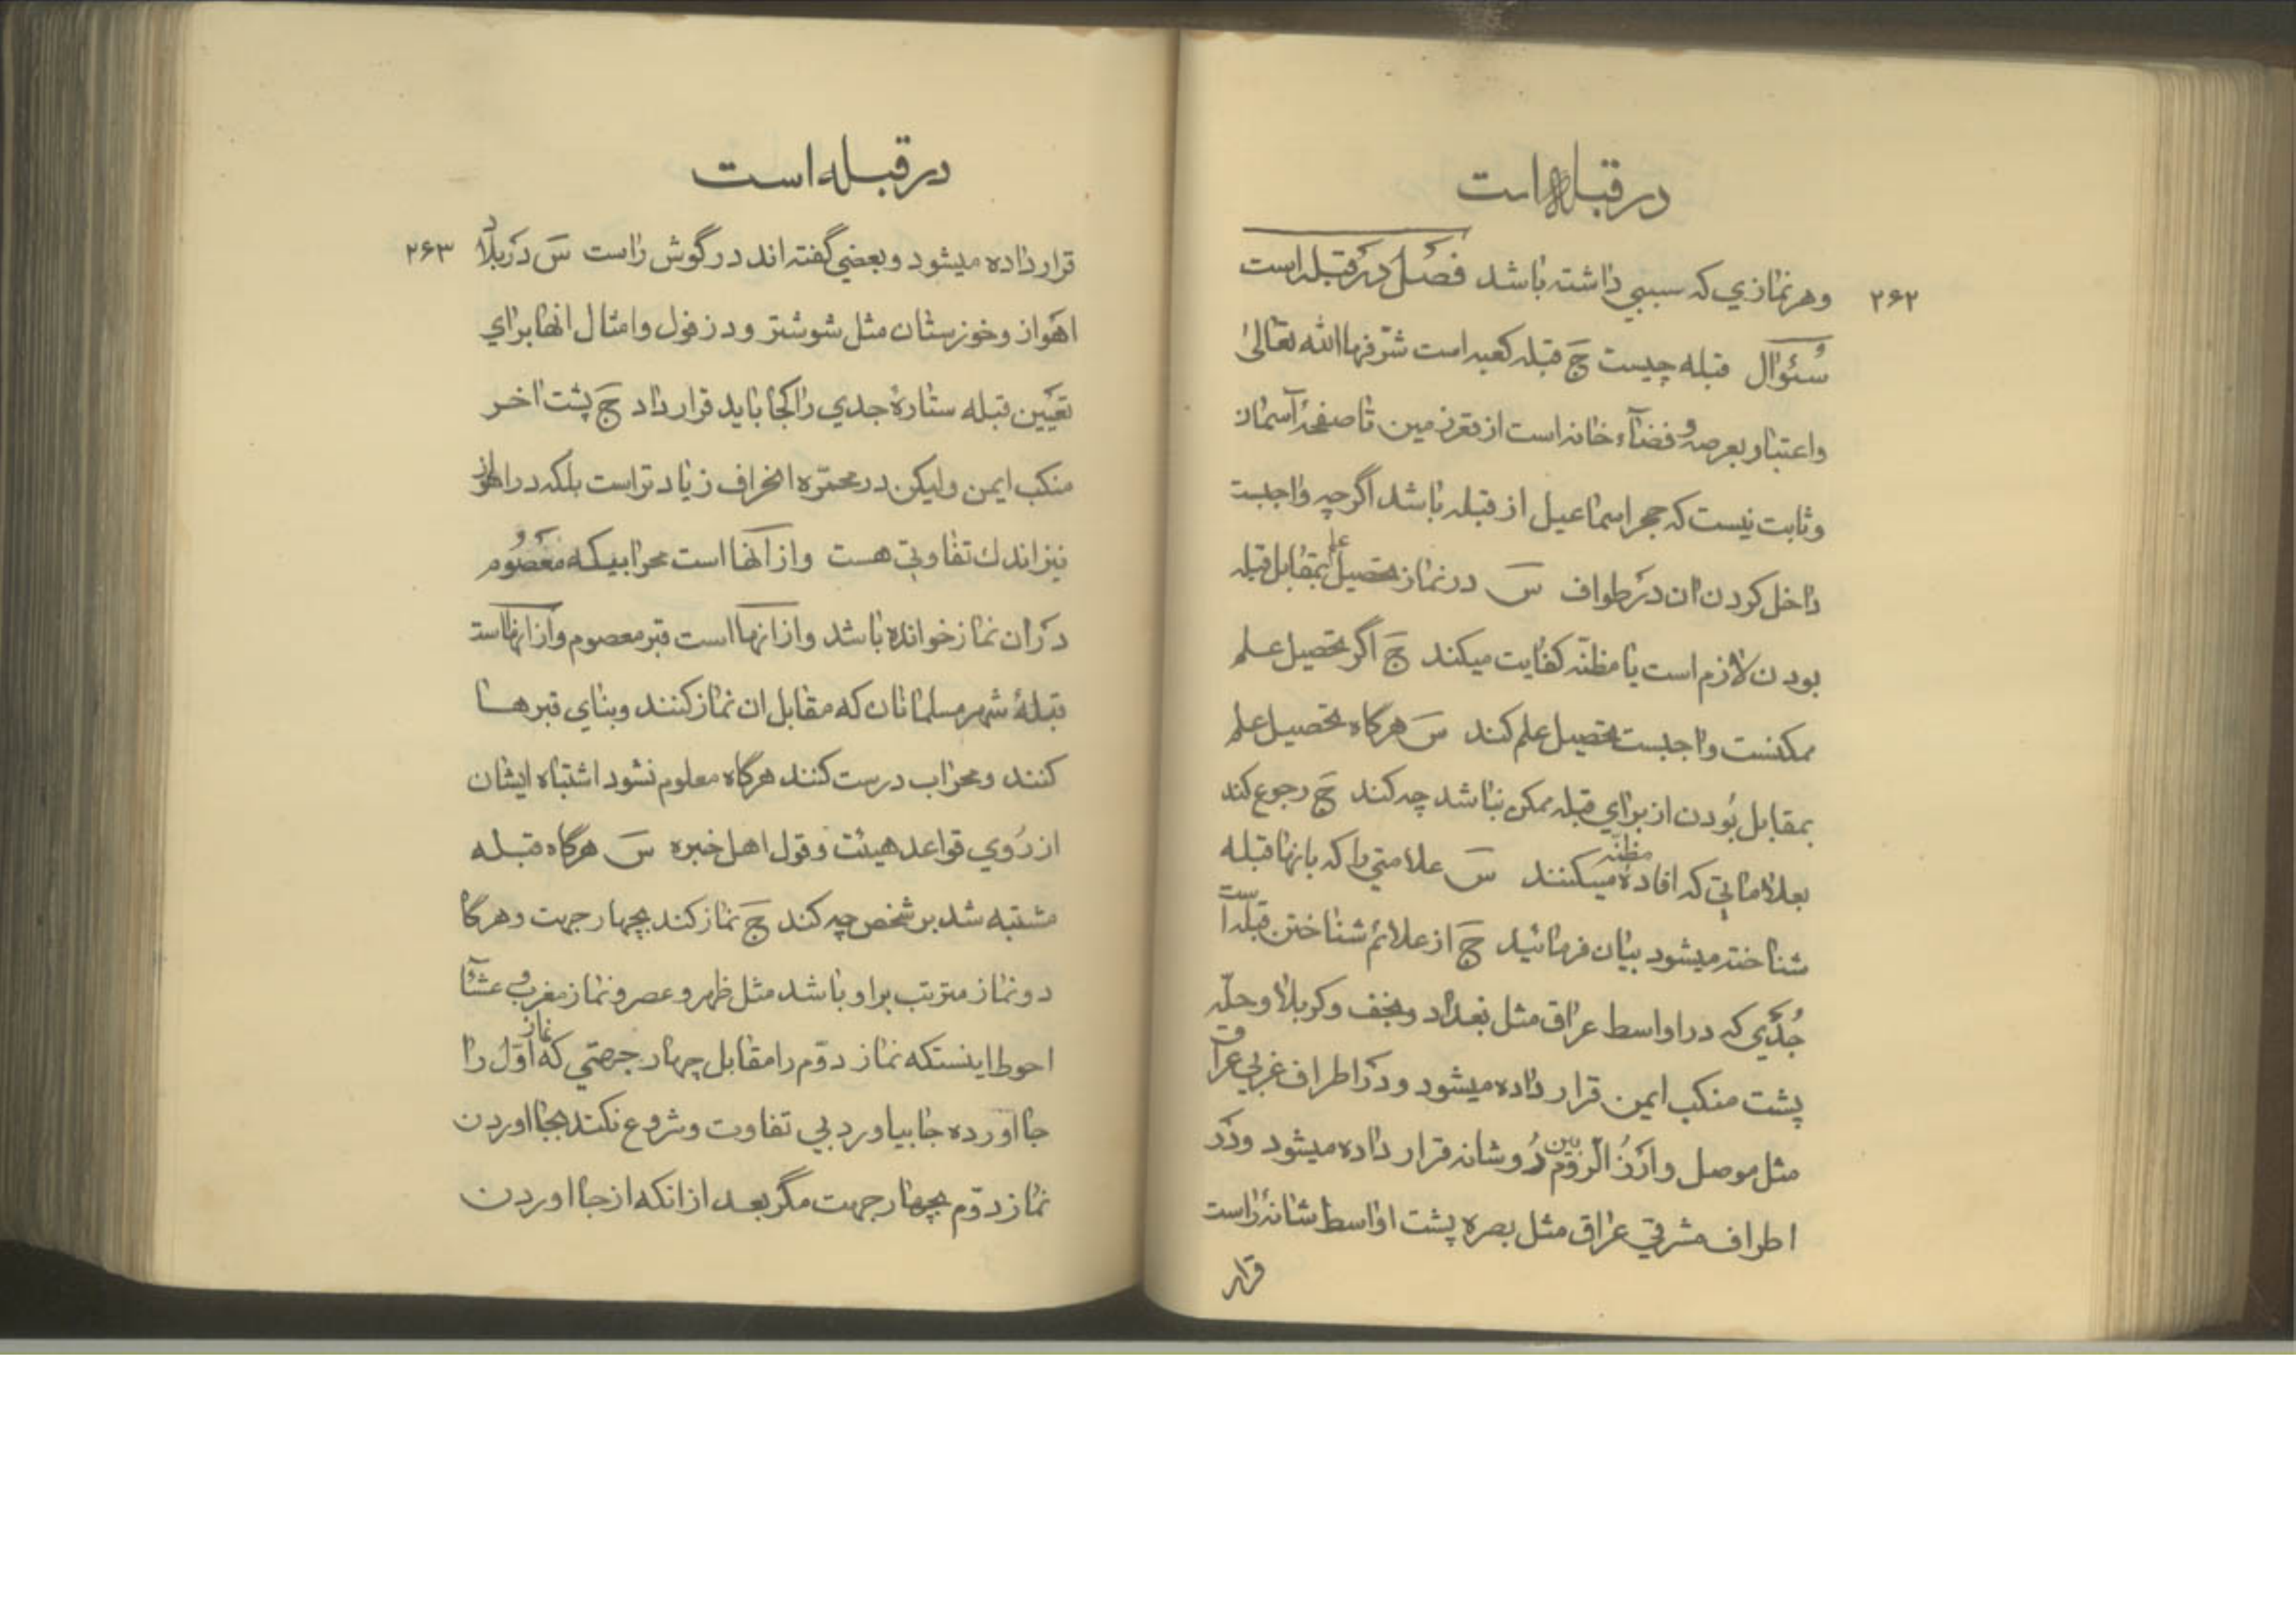 در قبله است
۲۶۲
وهر نمازي که سببي داشته باشد فصل در قبله است
سُئوال قبله چیست جَ قبله کعبه است شرّفها الله تعالیٰ
واعتبار بعرصه و فضآء خانه است از قعر زمین تا صفحهٔ آسمان
وثابت نیست که حجر اسماعیل از قبله باشد اگرچه واجبست
داخل کردن ان در طواف سَ در نماز تحصیل علم بمقابل قبله
بودن لازم است یا مظنّه کفایت میکند جَ اگر تحصیل علم
ممکنست واجبست تحصیل علم کند سَ هرگاه تحصیل علم
بمقابل بُودن از براي قبله ممکن نباشد چه کند جَ رجوع کند
بعلاماتي که افادهٔ مظنّه میکنند سَ علامتي را که بانها قبله
شناخته میشود بیان فرمائید جَ از علائم شناختن قبله است
جُدَّي که در اواسط عراق مثل بغداد ونجف وکربلا وحلّه
پشت منکب ایمن قرار داده میشود ودر اطراف غربي عراق
مثل موصل وارزُ الرّوم بین دُو شانه قرار داده میشود ودر
اطراف مشرقي عراق مثل بصره پشت اواسط شانهٔ راست
قرار
در قبله است
۲۶۳
قرار داده میشود وبعضي گفته اند در گوش راست سَ در بلاد
اهواز وخوزستان مثل شوشتر ودزفول وامثال انها براي
تعیین قبله ستارهٔ جدي را کجا باید قرار داد جَ پشت اخر
منکب ایمن ولیکن در محمّره انحراف زیادتر است بلکه در اهواز
نیز اندك تفاوتي هست واز آنها است محرابیکه معصُوم
در ان نماز خوانده باشد واز انها است قبر معصوم واز انها است
قبلهٔ شهر مسلمانان که مقابل ان نماز کنند وبناي قبرها
کنند ومحراب درست کنند هرگاه معلوم نشود اشتباه ایشان
از رُوي قواعد هیئت وقول اهل خبره سَ هرگاه قبله
مشتبه شد بر شخص چه کند جَ نماز کند بچهار جهت وهرگا
دو نماز مترتب بر او باشد مثل ظهر وعصر ونماز مغرب و عشآ
احوط اینستکه نماز دوّم را مقابل چهار جهتي که نماز اوّل را
جا اورده جا بیاورد بي تفاوت وشروع نکند بجا اوردن
نماز دوّم بچهار جهت مگر بعد از انکه از جا اوردن